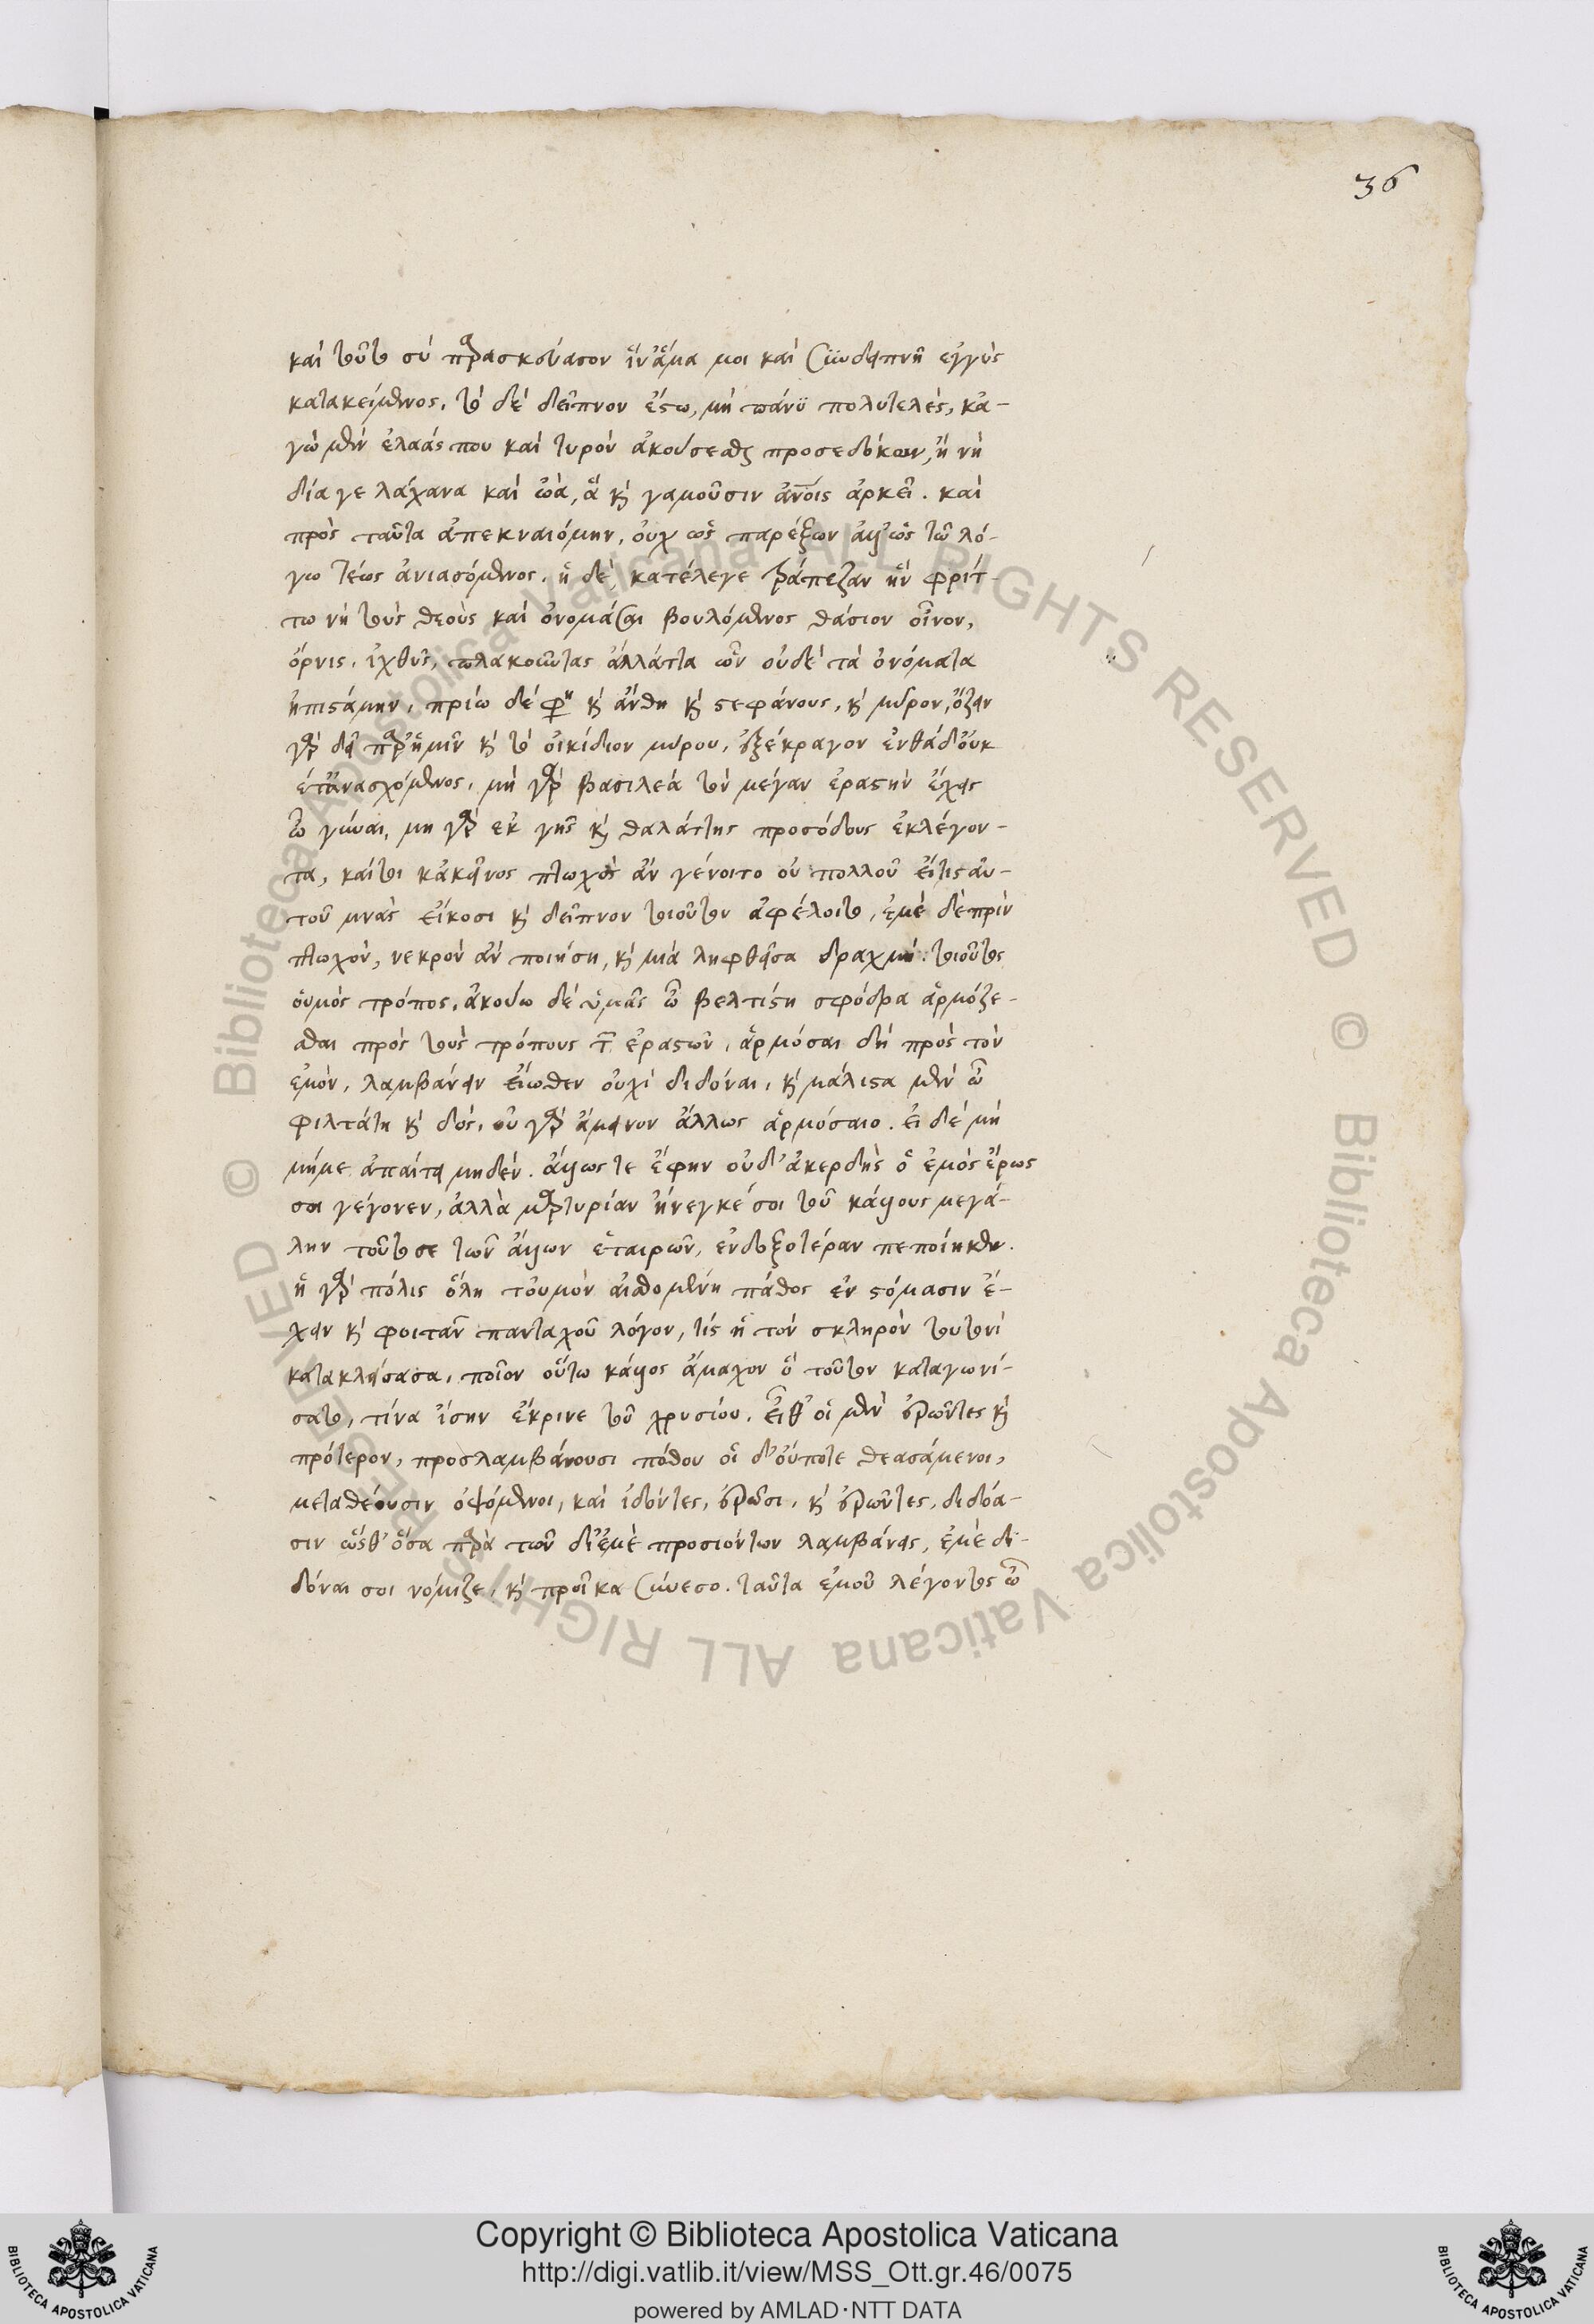 36
καὶ τοῦτο σὺ παρασκεύασον ἵν' ἅμα μοι καὶ συνδειπνῇ ἐγγὺς
κατακείμενος, τὸ δὲ δεῖπνον ἔστω, μὴ πάνυ πολυτελὲς, κἀ-
γὼ μὲν ἐλαάς που καὶ τυρὸν ἀκούσεσθαι προσεδόκων, ἢ νὴ
δία γε λάχανα καὶ ὠὰ, ἃ καὶ γαμοῦσιν ἀνοις ἀρκεῖ. καὶ
πρὸς ταῦτα ἀπεκναιόμην, οὐχ ὡς παρέξων ἀλλ' ὡς τῷ λό-
γω τέως ἀνιασόμενος. ἡ δὲ, κατέλεγε τράπεζαν ἣν φρίτ-
τω νὴ τοὺς θεοὺς καὶ ὀνομάσαι βουλόμενος θάσιον οἶνον,
ὄρνις, ἰχθῦς, πλακοῦντας ἀλλάττα ὧν οὐδὲ τὰ ὀνόματα
ἠπιστάμην, πρίω δέ φη καὶ ἄνθη καὶ στεφάνους, καὶ μύρον, ὄζειν
γὰρ δεῖ παρ' ἡμῖν καὶ τὸ οἰκίδιον μύρου, ἐξέκραγον ἐνθάδ' οὐκ
ἔτ' ἀνασχόμενος, μὴ γὰρ βασιλέα τὸν μέγαν ἐραστὴν ἔχεις
ὦ γύναι, μη γὰρ ἐκ γῆς καὶ θαλάττης προσόδους ἐκλέγον-
τα, καίτοι κἀκεῖνος πτωχὸς ἂν γένοιτο οὐ πολλοῦ εἴ τις αὐ-
τοῦ μνᾶς εἴκοσι καὶ δεῖπνον τοιοῦτον ἀφέλοιτο, ἐμὲ δὲ πρὶν
πτωχὸν, νεκρὸν ἂν ποιήσῃ, καὶ μιὰ ληφθεῖσα δραχμή. τοιοῦτος
οὑμὸς τρόπος. ἀκούω δὲ ὑμᾶς ὦ βελτίστη σφόδρα ἁρμόζε-
σθαι πρὸς τοὺς τρόπους τ ἐραστῶν. ἁρμόσαι δὴ πρὸς τὸν
ἐμὸν, λαμβάνειν εἴωθεν οὐχὶ διδόναι, καὶ μάλιστα μὲν ὦ
φιλτάτη καὶ δὸς, οὐ γὰρ ἄμεινον ἄλλως ἁρμόσαιο. εἰ δὲ μὴ
μήμε ἀπαίτει μηδέν. ἄλλως τε ἔφην οὐδ' ἀκερδὴς ὁ ἐμὸς ἔρως
σοι γέγονεν, ἀλλὰ μαρτυρίαν ἤνεγκέ σοι τοῦ κάλλους μεγά-
λην τοῦτο σε τῶν ἄλλων ἑταιρῶν, ἐνδοξοτέραν πεποίηκεν.
ἡ γὰρ πόλις ὅλη τοὐμὸν αἰσθομένη πάθος ἐν στόμασιν ἔ-
χειν καὶ φοιτᾶν πανταχοῦ λόγον, τίς ἡ τὸν σκληρὸν τουτονὶ
κατακλείσασα, ποῖον οὕτω κάλλος ἄμαχον ὃ τοῦτον καταγωνί-
σατο, τίνα ἴσην ἔκρινε τοῦ χρυσίου. εἶθ' οἱ μὲν ἐρῶντες καὶ
πρότερον, προσλαμβάνουσι πόθον οἱ δ' οὔποτε θεασάμενοι,
μεταθέουσιν ὀψόμενοι, καὶ ἰδόντες, ἐρῶσι, καὶ ἐρῶντες, διδόα-
σιν ὥσθ' ὅσα παρὰ τῶν δι' ἐμὲ προσιόντων λαμβάνεις, ἐμὲ δι-
δόναι σοι νόμιζε, καὶ προῖκα σύνεσο. ταῦτα ἐμοῦ λέγοντος ὦ
Copyright © Biblioteca Apostolica Vaticana
http://digi.vatlib.it/view/MSS_Ott.gr.46/0075
powered by AMLAD·NTT DATA
BIBLIOTECA APOSTOLICA VATICANA
BIBLIOTECA APOSTOLICA VATICANA
© Biblioteca Apostolica Vaticana ALL RIGHTS RESERVED © Biblioteca Apostolica Vaticana ALL RIGHTS RESERVED